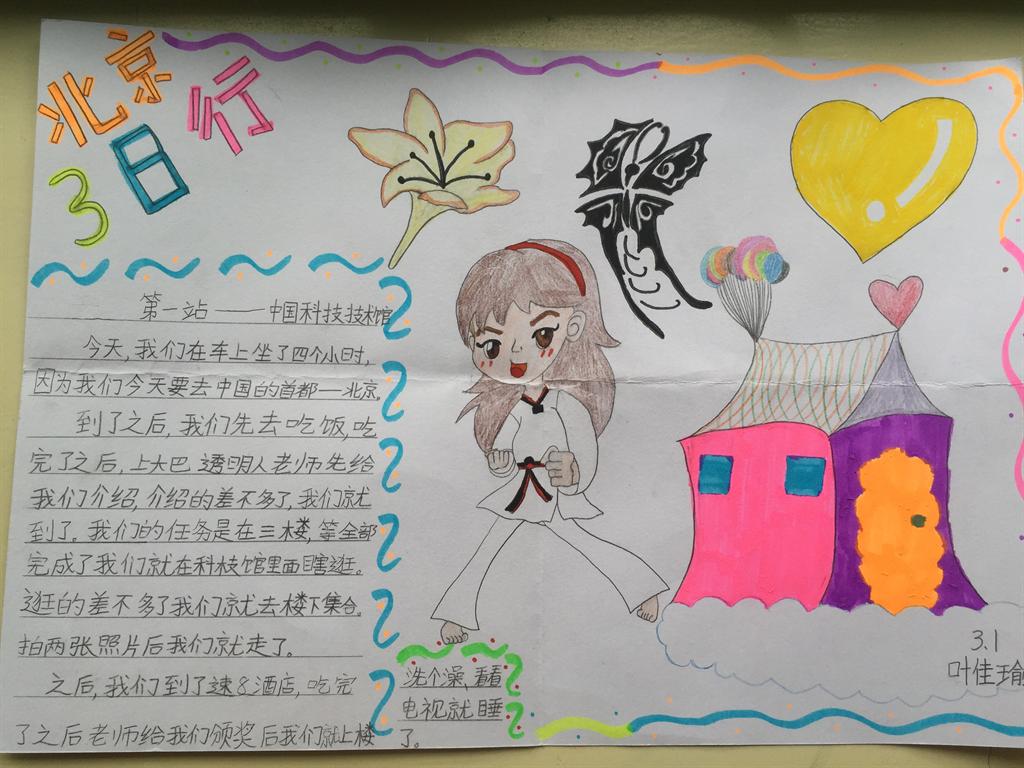 北京
3日行
第一站——中国科技技术馆
今天,我们在车上坐了四个小时,
因为我们今天要去中国的首都—北京,
到了之后,我们先去吃饭,吃
完了之后,上大巴透明人老师先给
我们介绍,介绍的差不多了,我们就
到了。我们的任务是在三楼,等全部
完成了我们就在科技馆里面瞎逛。
逛的差不多了我们就去楼下集合。
拍两张照片后我们就走了。
之后,我们到了速8酒店,吃完
了之后老师给我们颁奖后我们就上楼
洗个澡,看看
电视就睡
了。
3.1
叶佳瑜